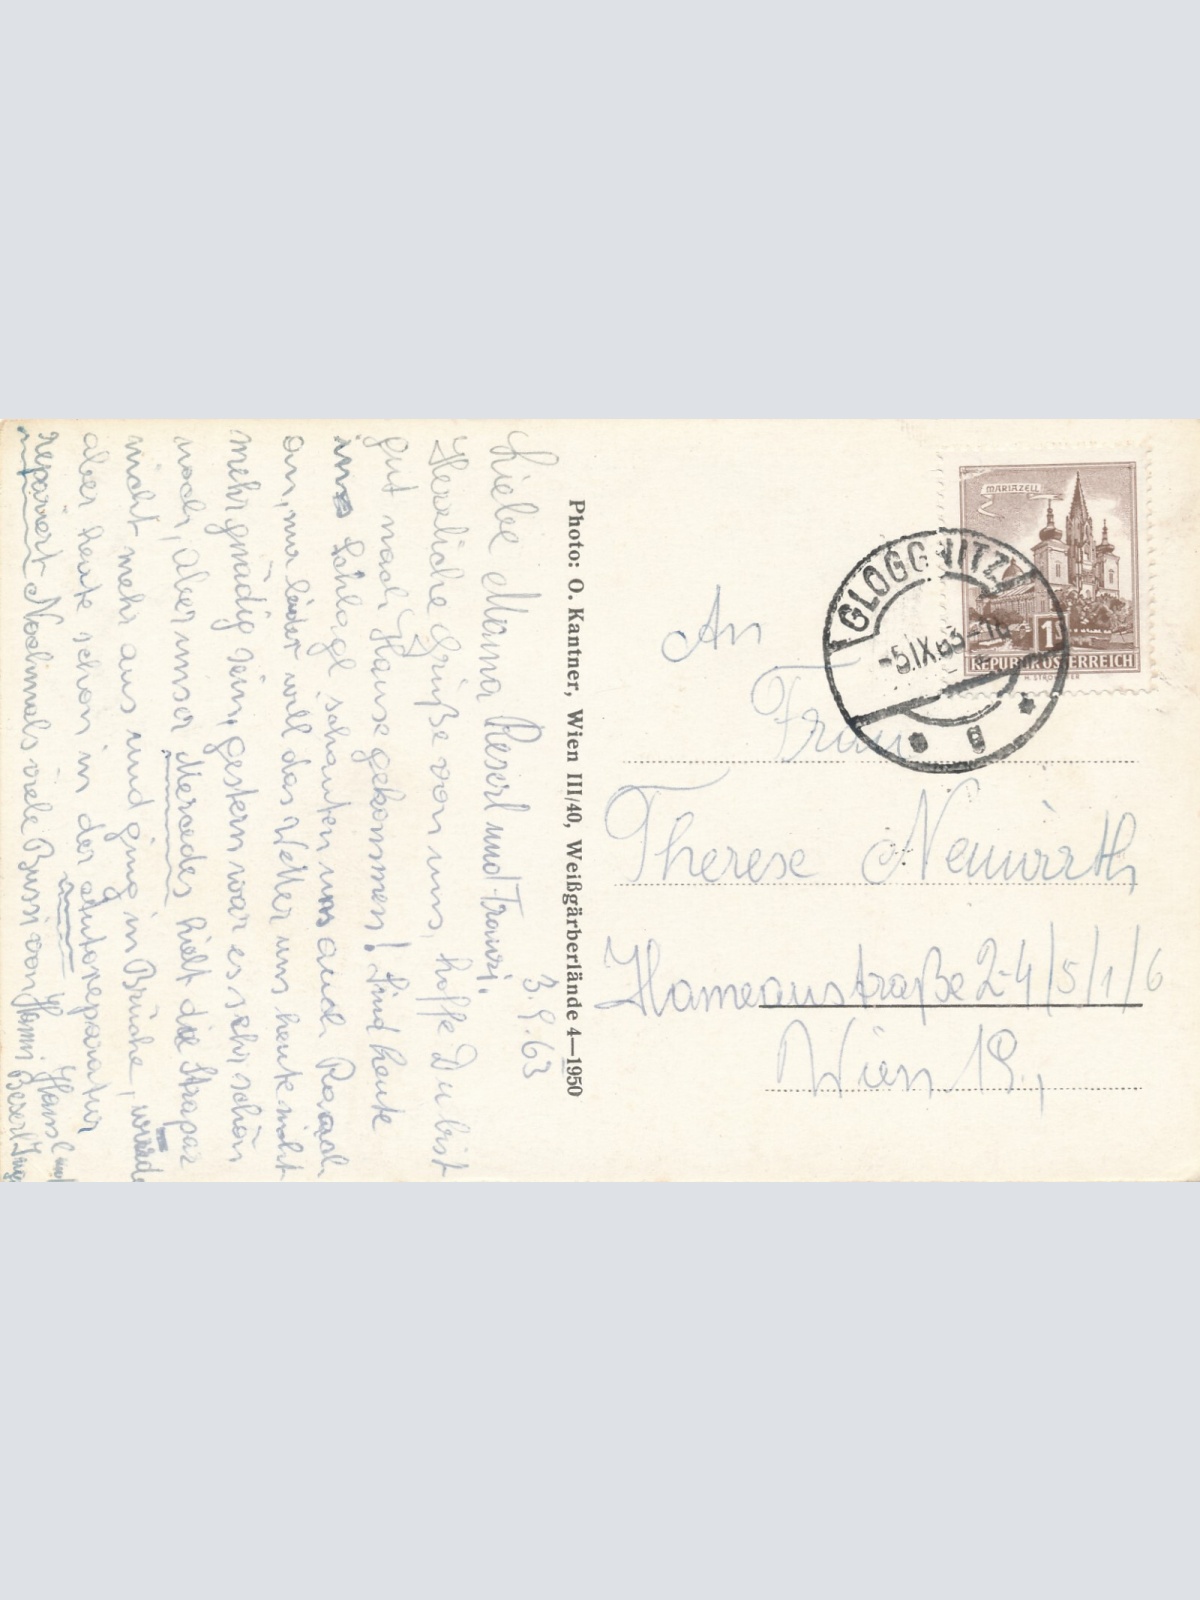 3.9.63
Liebe Mama Reserl und Franzi,
Herzliche Grüße von uns, hoffe Du bist
gut nach Hause gekommen! Sind heute
in Schlagl schauten uns auch Raach
an, nur leider will das Wetter uns heute nicht
mehr gnädig sein, gestern war es sehr schön
noch, aber unser Mercedes hielt die Strapaz
nicht mehr aus und ging in Brüche, wurde
aber heute schon in der Autoreparatur
repariert Nochmals viele Bussi von Hansi
Hansl und
Photo: O. Kantner, Wien III/40, Weißgärberlände 4—1950
MARIAZELL
1
REPUBLIK ÖSTERREICH
GLOGGNITZ
-5.IX.63-18
g
An
Frau
Therese Neuwirth
Hameaustraße 2-4/5/1/6
Wien 19.,